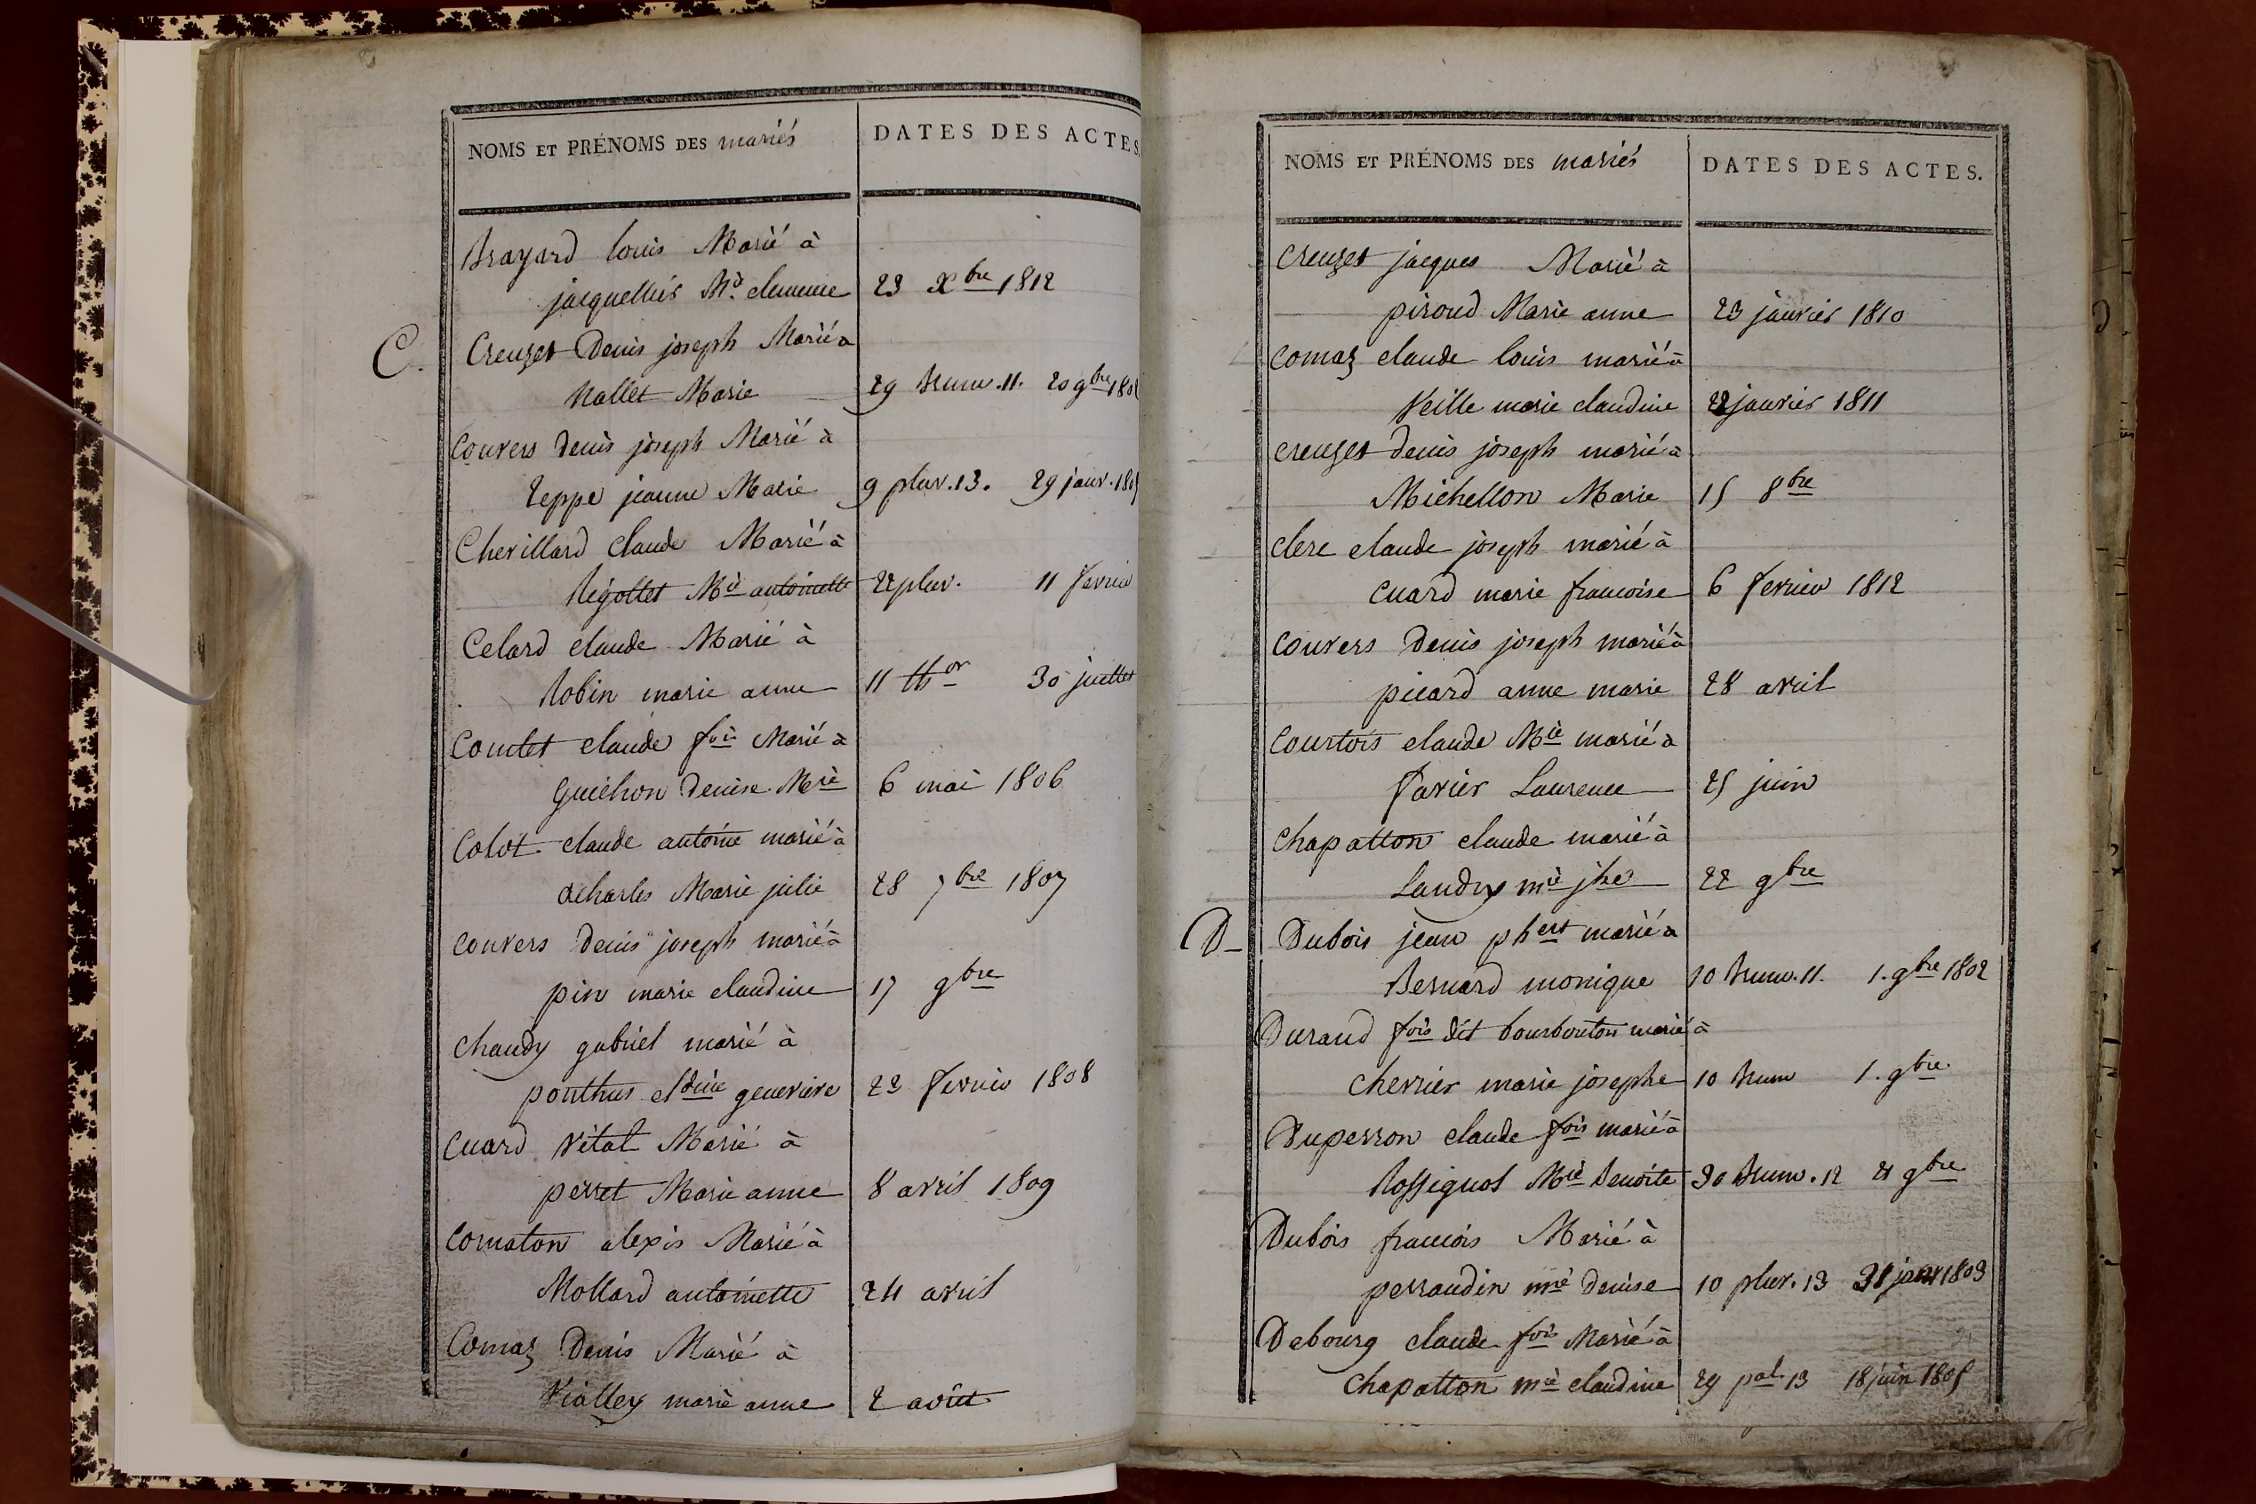 NOMS ET PRÉNOMS DES mariés
DATES DES ACTES.
Brayard louis Marié à
jacquellier Mie clemence 23 Xbre 1812
C.
Creuzet Denis joseph Marié à
Nallet Marie 29 brum. 11. 20 9bre
Couvers denis joseph Marié à
Teppe jeanne Marie 9 pluv. 13. 29 janv.
Chevillard claude Marié à
Régottet Mie antoinette 22 pluv. 11 fevrier
Celard claude Marié à
Robin marie anne 11 thor 30 juillet
Comtet claude fois Marié à
Guichon denise Mrie 6 mai 1806
Colot claude antoine marié à
decharles Marie julie 28 7bre 1807
couvers denis joseph marié à
pin marie claudine 17 9bre
Chaudy gabriel marié à
ponthus cldine genevieve 23 fevrier 1808
Cuard Vital Marié à
perret Marie anne 8 avril 1809
Comaton alexis Marié à
Mollard antoinette 24 avril
Comaz Denis Marié à
Vialley marie anne 2 août
NOMS ET PRÉNOMS DES mariés
DATES DES ACTES.
Creuzet jacques Marié à
piroud Marie anne 23 janvier 1810
Comaz claude louis marié à
Veille marie claudine 22 janvier 1811
creuzet denis joseph marié à
Michellon Marie 15 8bre
clerc claude joseph marié à
cuard marie francoise 6 fevrier 1812
couvers Denis joseph marié à
picard anne marie 28 avril
Courtois claude Mie marié à
favier Laurence 25 juin
Chapatton claude marié à
Landry mie jhe 22 9bre
D
Dubois jean phert marié à
Bernard monique 10 brum. 11. 1. 9bre 1802
Durand fois dit bourbouton marié à
cherrier marie josephe 10 brum 1. 9bre
Duperron claude fois marié à
Rossignol Mie benoite 30 brum. 12 21 9bre
Dubois francois Marié à
perraudin mie denise 10 pluv. 13 31 janv 1803
Debourg claude fois Marié à
Chapatton mie claudine 29 pal 13 18 juin 1805